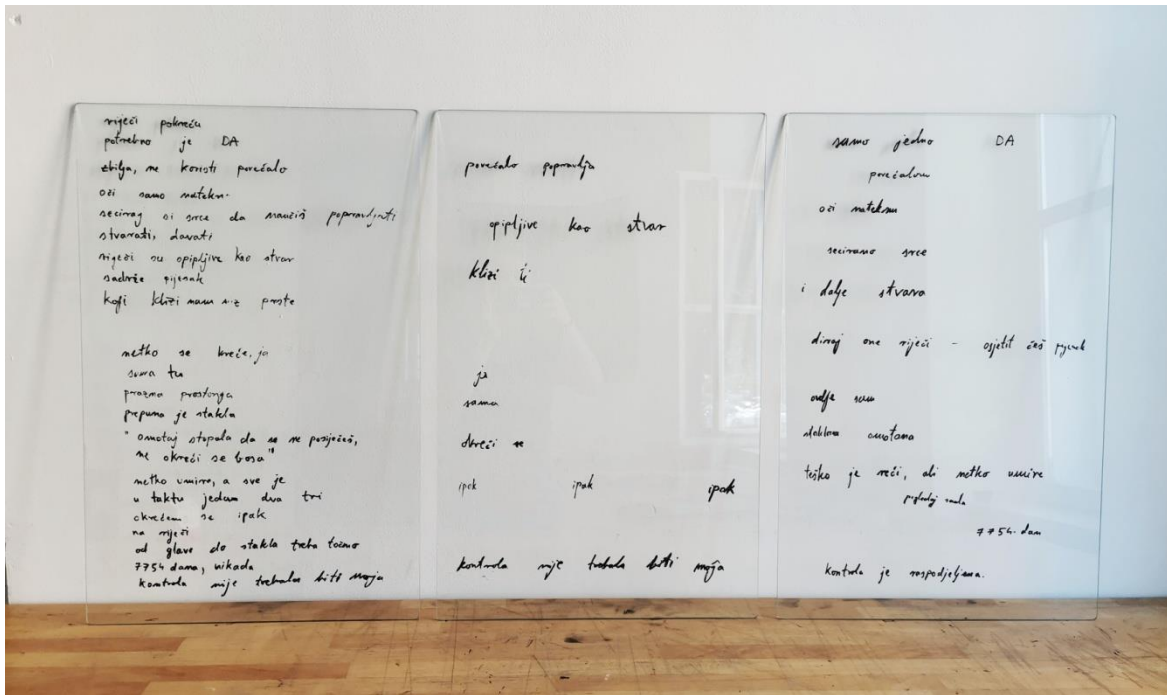 riječi pokreću
potrebno je DA
zbilja, ne koristi povećalo
oči samo nateknu.
seciraj si srce da naučiš popravljati
stvarati, davati
riječi su opipljive kao stvar
sadrže pijesak
koji klizi nam niz prste
netko se kreće, ja
sama tu
prazna prostorija
prepuna je stakla
"omotaj stopala da se ne posiječeš,
ne okreći se bosa"
netko umire, a sve je
u taktu jedan dva tri
okrećem se ipak
na riječi
od glave do stakla treba točno
7754 dana, nikada
kontrola nije trebala biti moja
povećalo popravlja
opipljive kao stvar
klizi
ja
sama
okreći se
ipak ipak ipak
kontrola nije trebala biti moja
samo jedno DA
povećalom
oči nateknu
secirano srce
i dalje stvara
diraj one riječi - osjetit ćeš pijesak
ovdje sam
staklom omotana
teško je reći, ali netko umire
pogledaj
7754. dan
kontrola je raspodjeljena.